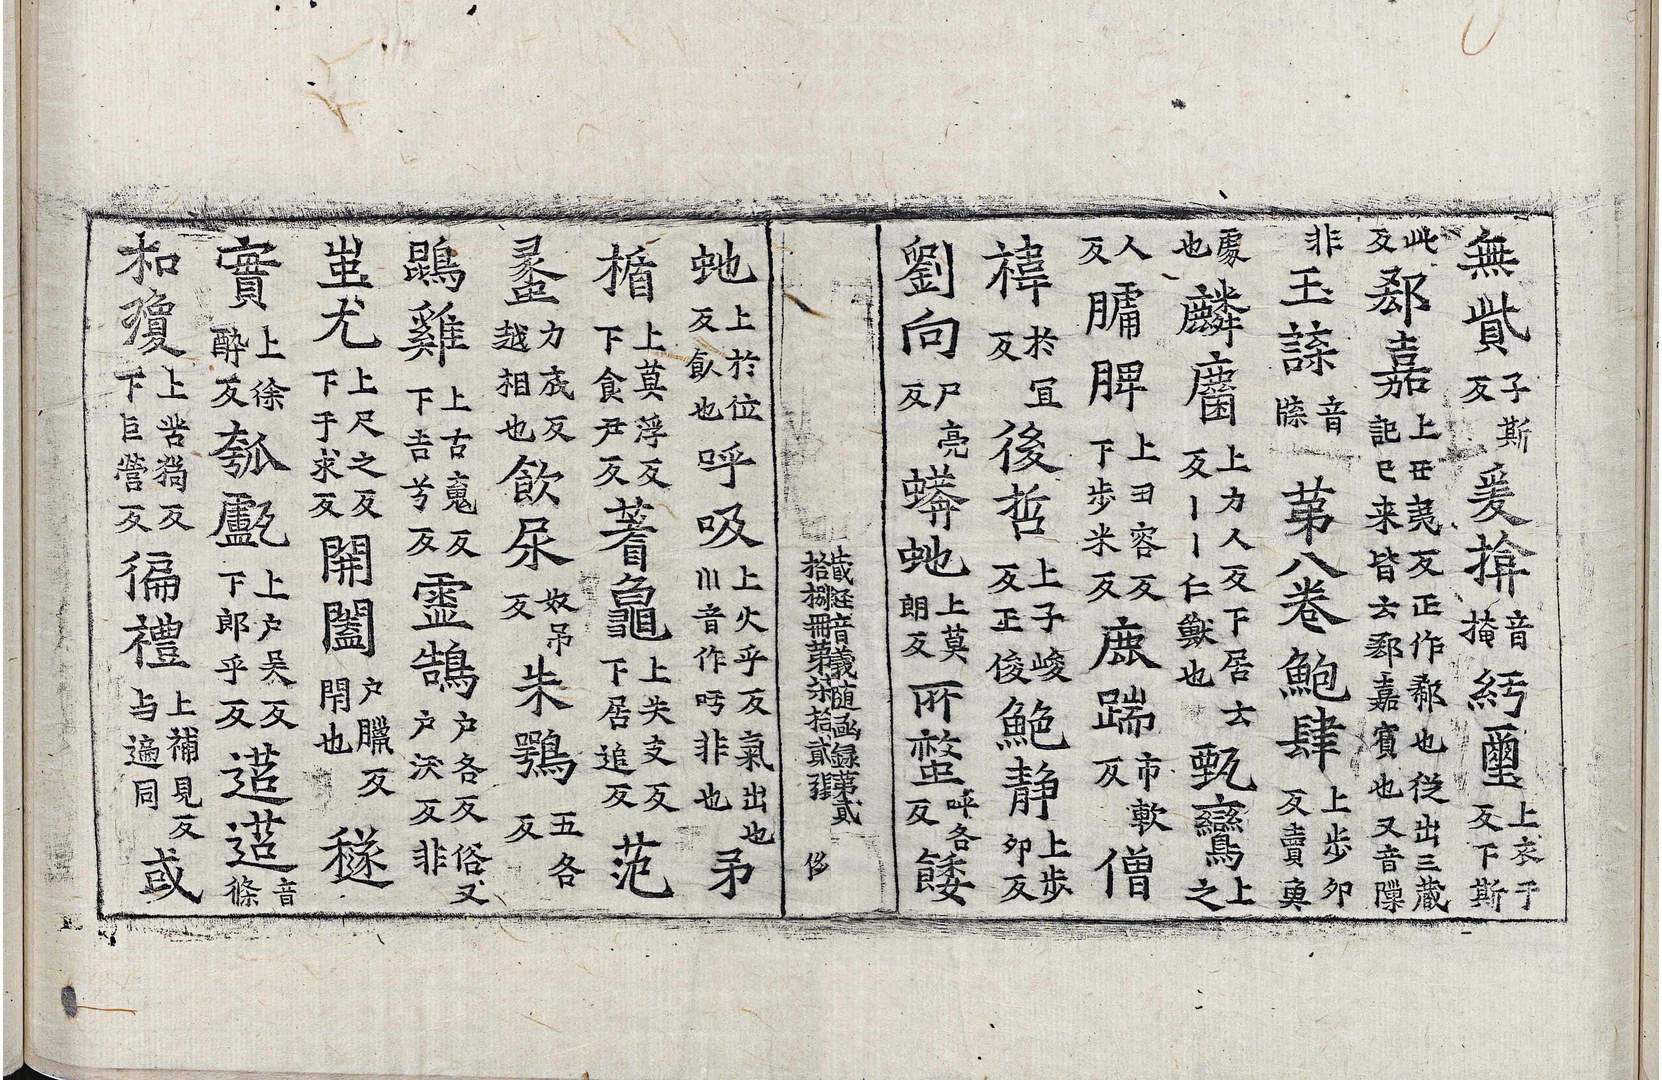 無貲子斯反爰揜音掩綒璽上衣于反下斯
此反郄嘉上丑夷反正作郗也從出三藏記已来皆云郄嘉賓也又音隟
非玉㻡音㻡第八卷鮑肆上步卯反賣臾
處也麟麕上力人反下居云反丨丨仁獸也甄鸞上之
人反膅脾上容反下步米反鹿踹市軟反僧
褘於宜反後哲上子峻反正俊鮑静上步卯反
劉向尸亮反蟒虵上莫朗反所螫呼各反餧
藏經音義隨函錄第貳拾捌冊第柒拾貳張 侈
虵上於位反飤也呼吸上火乎反氣出也川音作呺非也矛
楯上莫浮反下食尹反蓍龜上失支反下居追反范
蠡力底反越相也飲尿奴吊反朱鶚五各反
鶪雞上古䆪反下吉兮反靈鵠戶各反俗又戶沃反非
蚩尤上尺之反下于求反開闔戶臘反閇也䆳
實上徐醉反瓠甗上戶吴反下郎乎反䓁䓁音條
和瓊上苦反下巨營反徧禮上補見反与遍同或